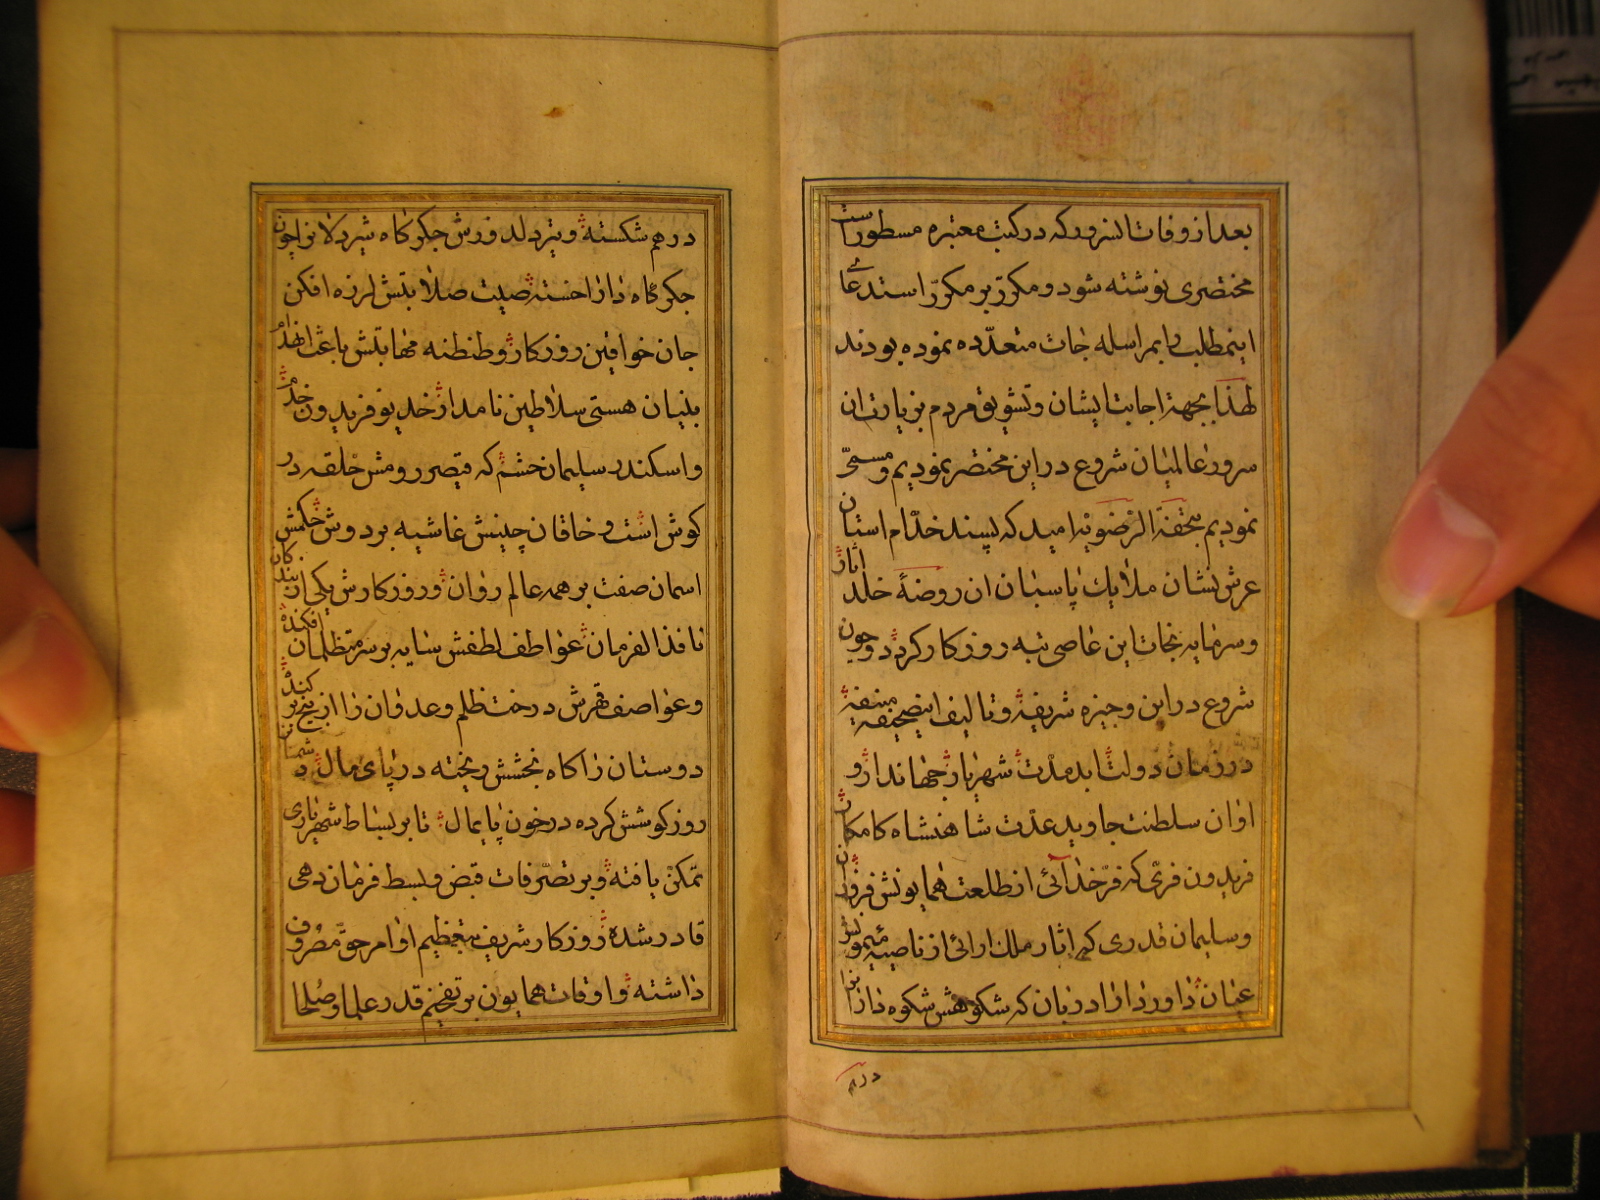 بعد از وفات انسرور که در کتب معتبره مسطور است
مختصری نوشته شود و مکرّر بر مکرّر استدعای
اینمطلب را بمراسله جات متعدّده نموده بودند
لهذا بجهة اجابت ایشان و تشویق مردم بزیارت ان
سرور عالمیان شروع در این مختصر نمودیم و مسمّی
نمودیم بتحفة الرّضویّه امید که پسند خدّام استان
عرش نشان ملایك پاسبان ان روضهٔ خلد اثار
و سرمایه نجات این عاصی تبه روزکار کردد و چون
شروع در این وجیزه شریفه و تالیف اینصحیفه منیفه
در زمان دولت ابد مدّت شهریار جهاندار و
اوان سلطنت جاوید عدّت شاهنشاه کامکار
فریدون فرّی که فرّ خدائی از طلعت همایونش فروزان
و سلیمان قدری که اثار ملك ارائی از ناصیه میمونش
عیان داور دارا دربان که شکوهش شکوه دارا
درهم
درهم شکسته و بیرد لدوزش جکرکاه شیردلانرا چون
جکرکاه دارا خسته صیت صلابتش لرزه افکن
جان خواقین روزکار و طنطنه مهابتش باعث انهدام
بنیان هستی سلاطین نامدار خدیو فریدون خدم
و اسکندر سلیمان حشم که قیصر رومش حلقه در
کوش است و خاقان چینش غاشیه بر دوش حکمش
اسمان صفت بر همه عالم روان و روزکارش یکی از بندکان
نافذ الفرمان عواطف لطفش سایه بر سر متظلمان افکنده
و عواصف قهرش درخت ظلم و عدوان را از بیخ و بن کنده
دوستان را کاه بخشش ریخته در پای مال و دشمنان
روز کوشش کرده در خون پایمال تا بر بساط شهریاری
تمکن یافته و بر تصرّفات قبض و بسط فرمان دهی
قادر شده روزکار شریف بتعظیم اوامر حق مصروف
داشته و اوقات همایون بر تفخیم قدر علما و صلحا